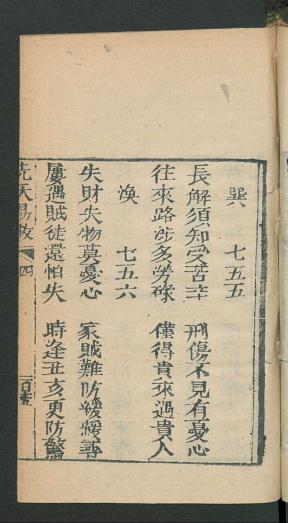 巽 七五五
長解須知受苦辛 刑傷不見有憂心
往來路途多勞碌 僅得貴來遇貴人
渙 七五六
失財失物莫憂心 家賊難防緩緩尋
屢遇賊徒還怕失 時逢丑亥更防驚
先天易數 四